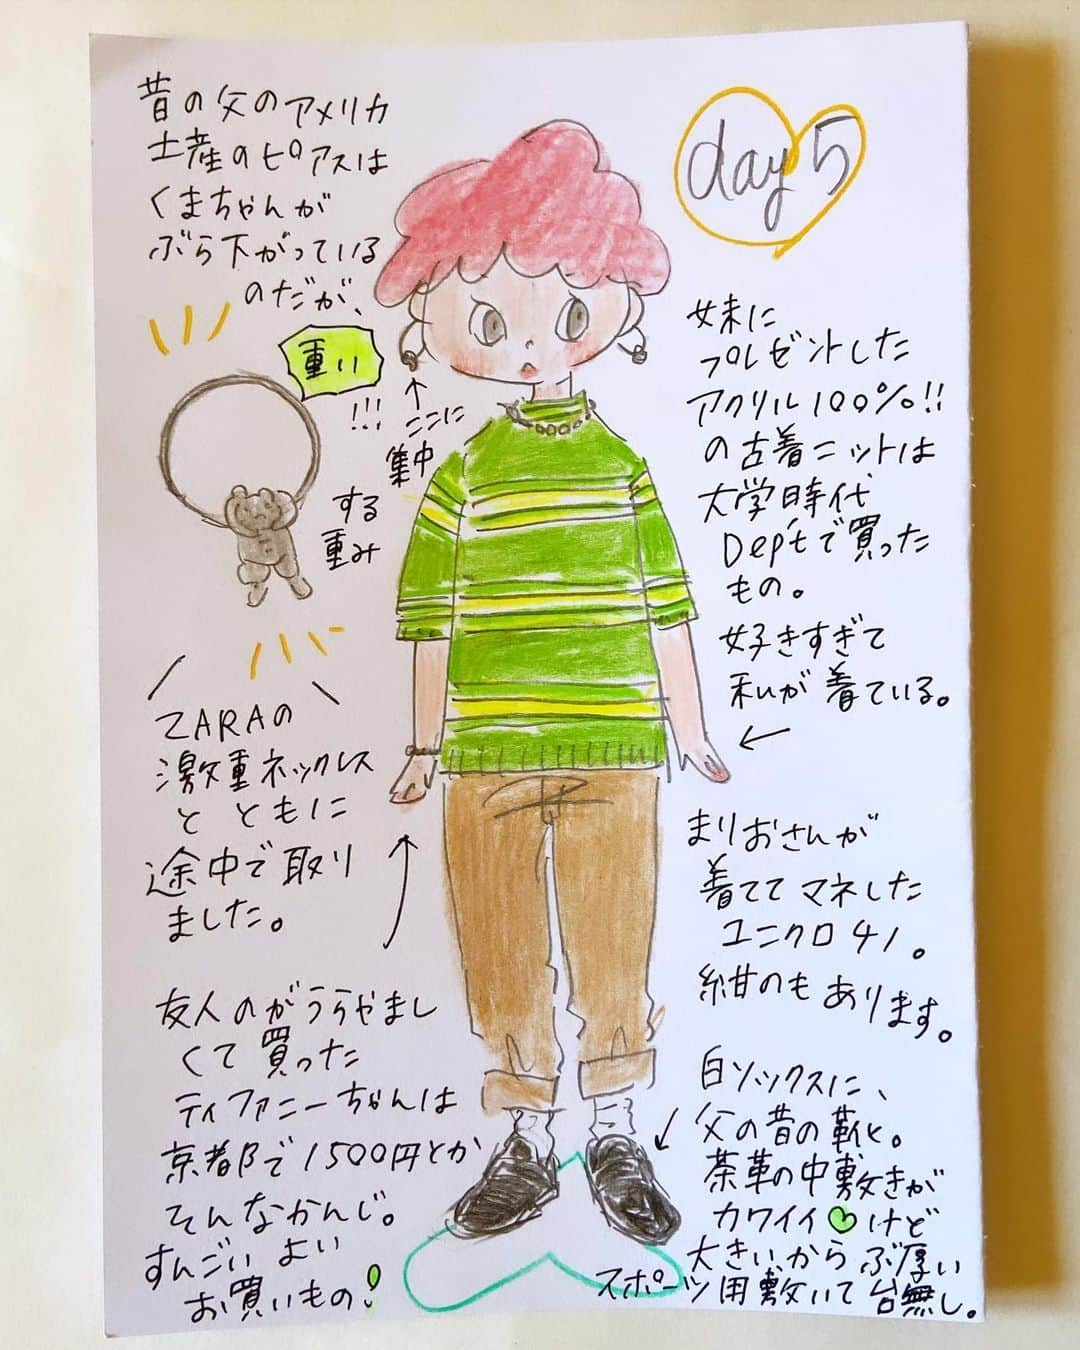 昔の父のアメリカ
土産のピアスは
くまちゃんが
ぶら下がっている
のだが、
重い
!!!
ここに
集中
する
重み
ZARAの
激重ネックレス
と ともに
途中で取り
ました。
友人のがうらやまし
くて買った
ティファニーちゃんは
京都で1500円とか
そんなかんじ。
すんごい よい
お買いもの!
day 5
妹に
プレゼントした
アクリル100%!!
の古着ニットは
大学時代
Dep'tで買った
もの。
好きすぎて
私が着ている。
まりおさんが
着ててマネした
ユニクロチノ。
紺のもあります。
白ソックスに、
父の昔の靴と。
茶革の中敷きが
カワイイ♡けど
大きいからぶ厚い
スポーツ用敷いて台無し。